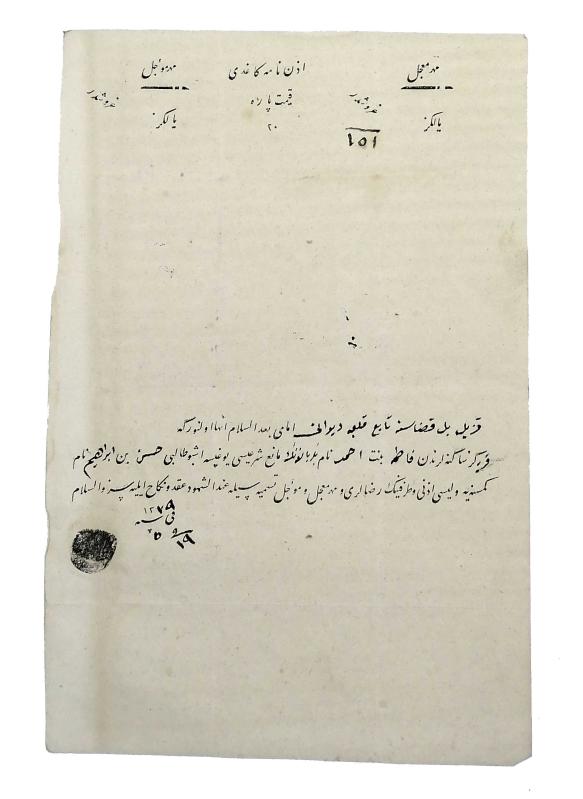 مهر معجل
اذن نامه كاغدى
مهر مؤجل
غروشدر
قيمت پاره
غروشدر
يالكز
١٥١
٢٠
يالكز
قزيل بل قضاسنه تابع قلعه ديوانى امامى بعد السلام انها اولنور كه
قريه كز ساكنه لرندن فاطمه بنت احمد نام مانع شرعيسى يوغيسه اشبو طالبى حسن بن ابراهيم نام
كمسنه يه وليسى اذنى وطرفينك رضالرى و مهر معجل و مؤجل تسميه سيله عند الشهود عقد ونكاح ايليه سز والسلام
فى سنه ١٢٧٩